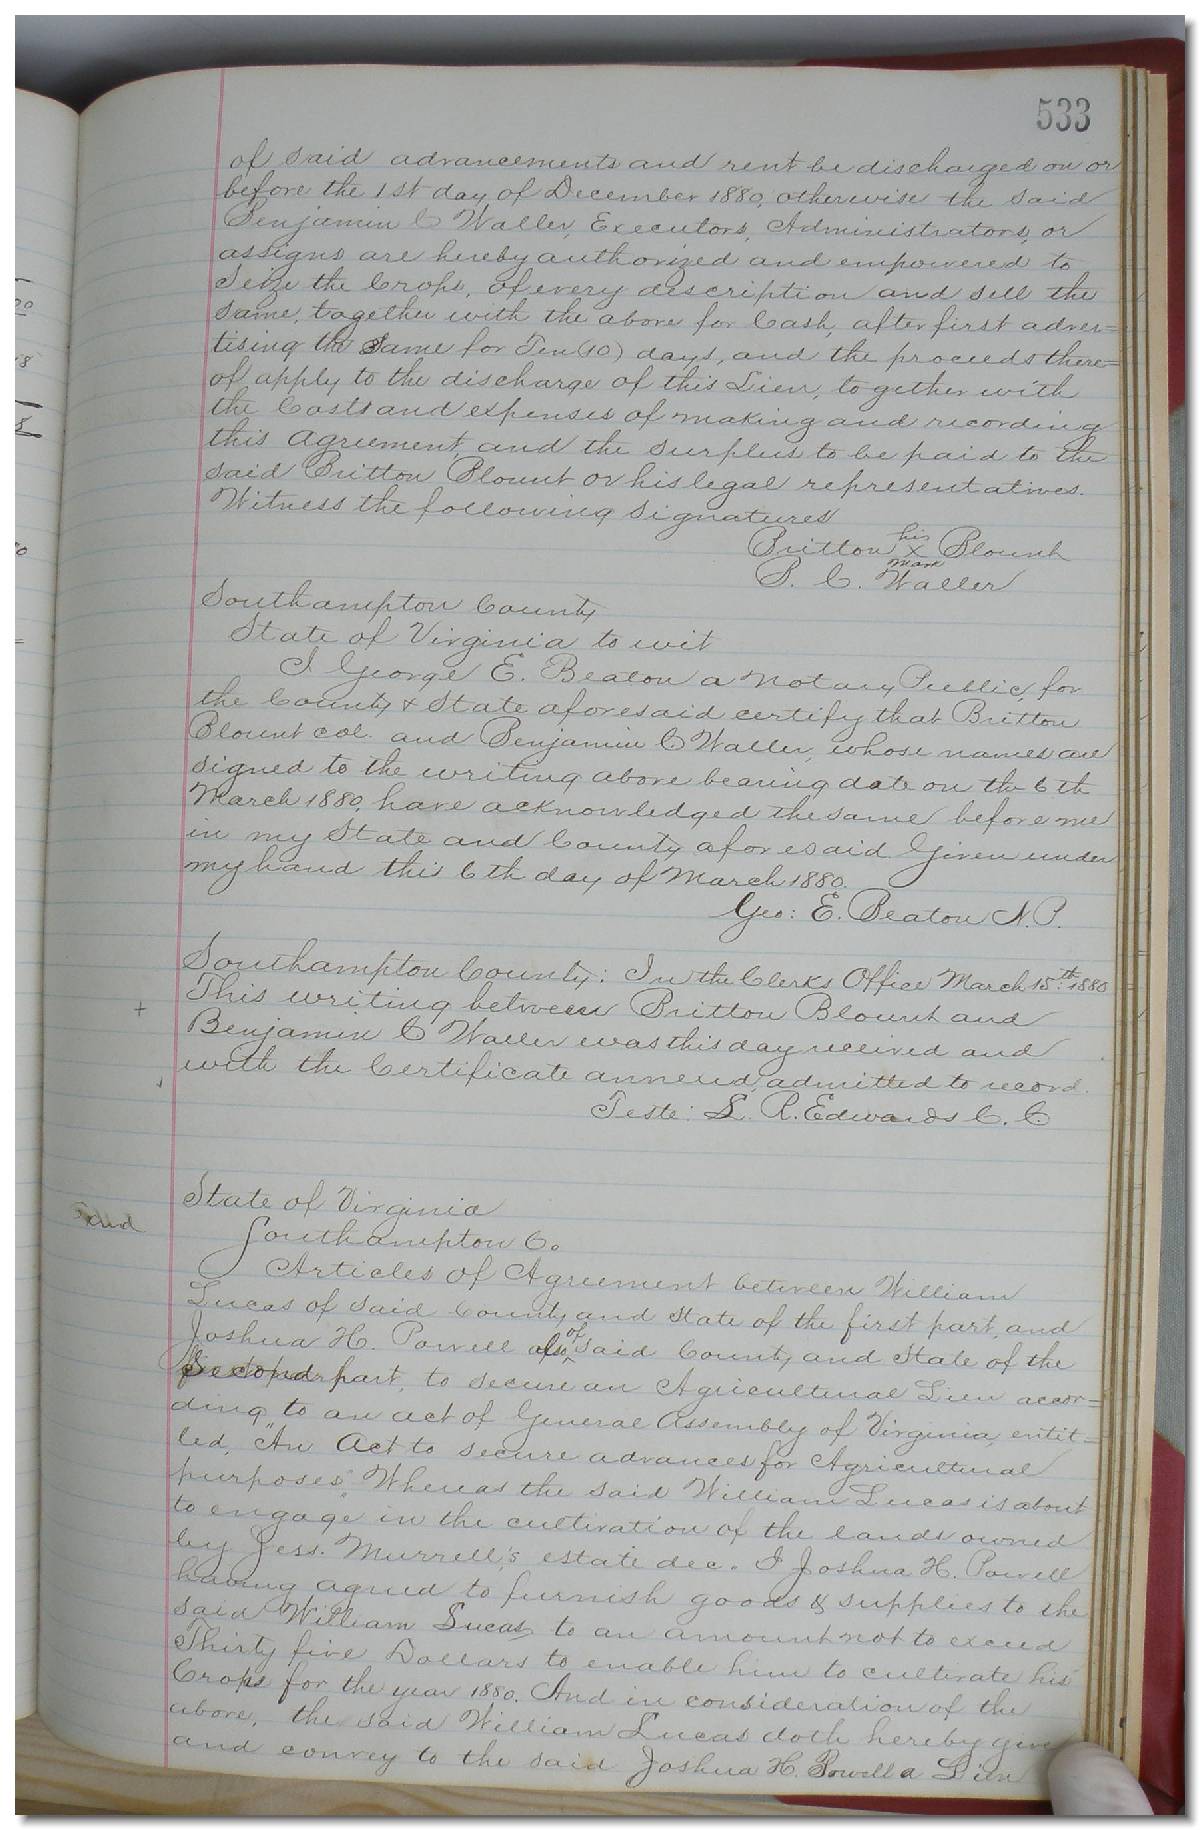 533
of said advancements and rent be discharged on or
before the 1st day of December 1880, otherwise the said
Benjamin C Waller, Executors, Administrators, or
assigns are hereby authorized and empowered to
Seize the Crops, of every description and sell the
same, together with the above for Cash, after first adver=
tising the Same for Ten (10) days, and the proceeds there=
of, apply to the discharge of this Lien, together with
the Costs and expenses of making and recording
this Agreement, and the surplus to be paid to the
said Britton Blount or his legal representatives.
Witness the following signatures
his
Britton X Blount
mark
B. C. Waller
Southampton County
State of Virginia to wit
I George E. Beaton a Notary Public, for
the County & State aforesaid certify that Britton
Blount col. and Benjamin C Waller, whose names are
signed to the writing above bearing date on the 6th
March 1880, have acknowledged the same before me
in my State and County aforesaid Given under
my hand this 6th day of March 1880.
Geo: E. Beaton N. P.
Southampton County: In the Clerks Office March 15th 1880
+ This writing between Britton Blount and
Benjamin C Waller was this day received and
with the Certificate annexed, admitted to record.
Teste: L. R. Edwards C. C.
State of Virginia
Southampton Co.
Articles of Agreement between William
Lucas of said County and State of the first part, and
Joshua H. Powell also of said County and State of the
Second part, to secure an Agricultural Lien accor=
ding to an act of General Assembly of Virginia, entit=
led, "An Act to secure advances for Agricultural
purposes," Whereas the said William Lucas is about
to engage in the cultivation of the lands owned
by Jess. Murrell's estate dec. I Joshua H. Powell
having agreed to furnish goods & supplies to the
said William Lucas to an amount not to exceed
Thirty five Dollars to enable him to cultivate his
Crops for the year 1880. And in consideration of the
above, the said William Lucas doth hereby give
and convey to the said Joshua H. Powell a Lien